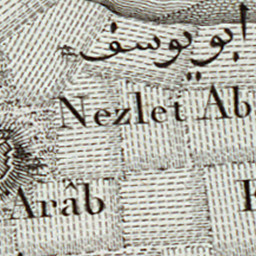 ابو يوسف
Nezlet Ab
Arâb